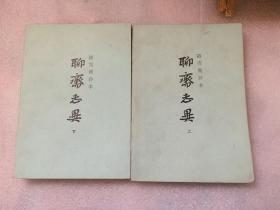 铸雪斋抄本
聊齋志異
下
铸雪斋抄本
聊齋志異
上